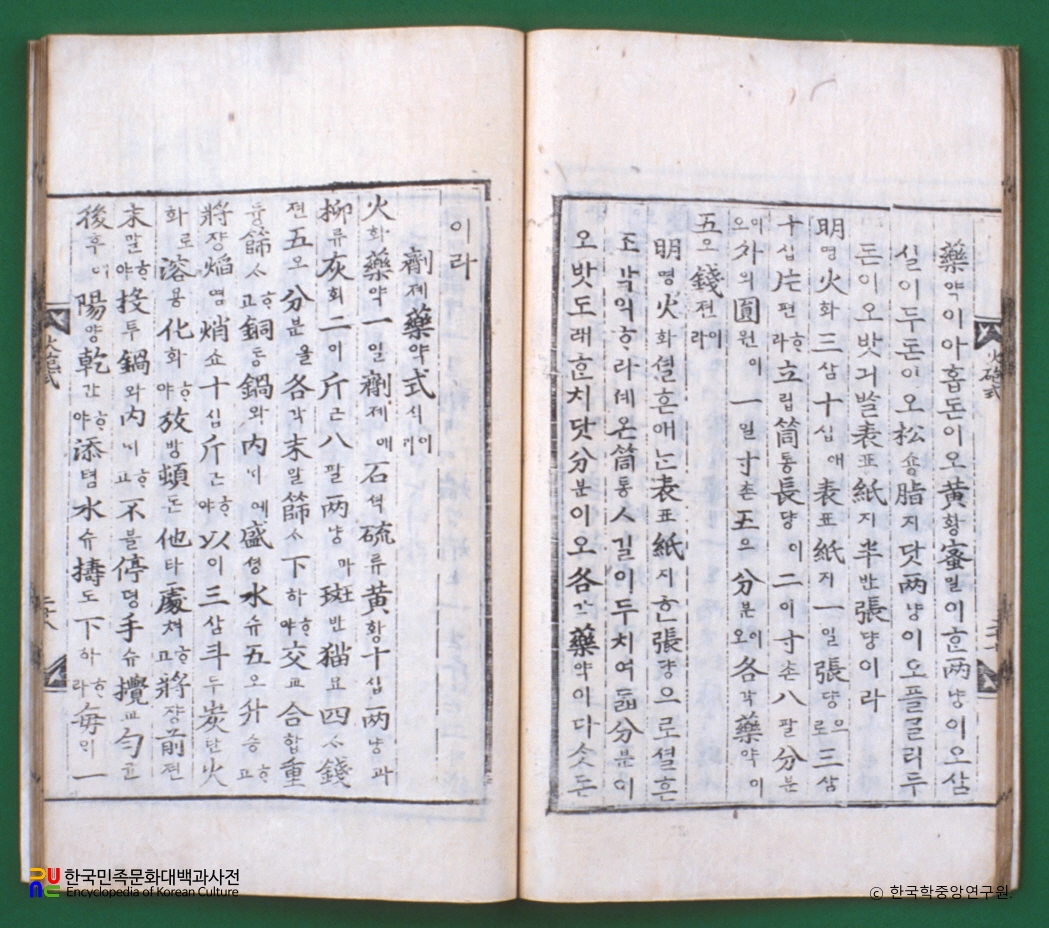 火砲式
藥약이아홉돈이오黃황蜜밀이ᄒᆞᆫ兩냥이오삼
실이두돈이오松숑脂지닷兩냥이오플글리두
돈이오밧긔발表표紙지半반張댱이라
明명火화三삼十십애表표紙지一일張댱으로三삼
十십片편ᄒᆞ라立립筒통長댱이二이寸촌八팔分분
이오外외圓원이一일寸촌五오分분이오各각藥약이
五오錢젼이라
明명火화셜흔애ᄂᆞᆫ表표紙지ᄒᆞᆫ張댱으로셜흔
조각익ᄒᆞ라셰온筒통ㅅ길이두치여ᄃᆞᆲ分분이
오밧도레ᄒᆞᆫ치닷分분이오各각藥약이다ᄉᆞᆺ돈
이라
劑졔藥약式식이리
火화藥약一일劑졔애石셕硫류黃황十십兩냥과
柳류灰회二이斤근八팔兩냥마斑반猫묘四ᄉᆞ錢
젼五오分분을各각末말篩ᄉᆞ下하ᄒᆞ야交교合합重
듕篩ᄉᆞᄒᆞ고銅동鍋와內ᄂᆡ예盛셩水슈五오升승ᄒᆞ고
將쟝焰염焇쇼十십斤근ᄒᆞ야以이三삼斗두炭탄火
화로溶용化화ᄒᆞ야放방頓돈他타處쳐ᄒᆞ고將쟝前젼
末말ᄒᆞ야投투鍋와內ᄂᆡᄒᆞ고不블停뎡手슈攪교勻균
後후이陽양乾간ᄒᆞ야添텸水슈擣도下하ᄒᆞ라每ᄆᆡ一
한국민족문화대백과사전
Encyclopedia of Korean Culture
© 한국학중앙연구원